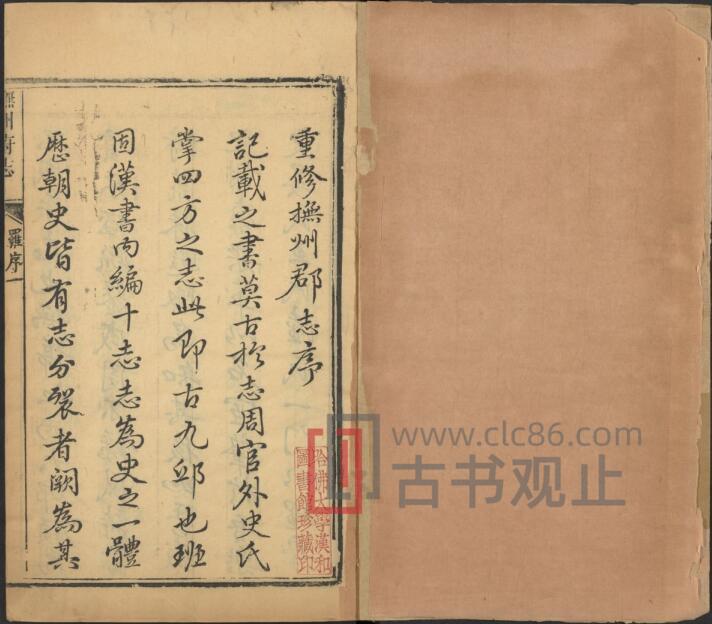 重修撫州郡志序
記載之書莫古於志周官外史氏
掌四方之志此即古九邱也班
固漢書內編十志志為史之一體
歷朝史皆有志分裂者闕為其
撫州府志
羅序一
哈佛大學漢和
圖書館珍藏印
www.clc86.com
古书观止